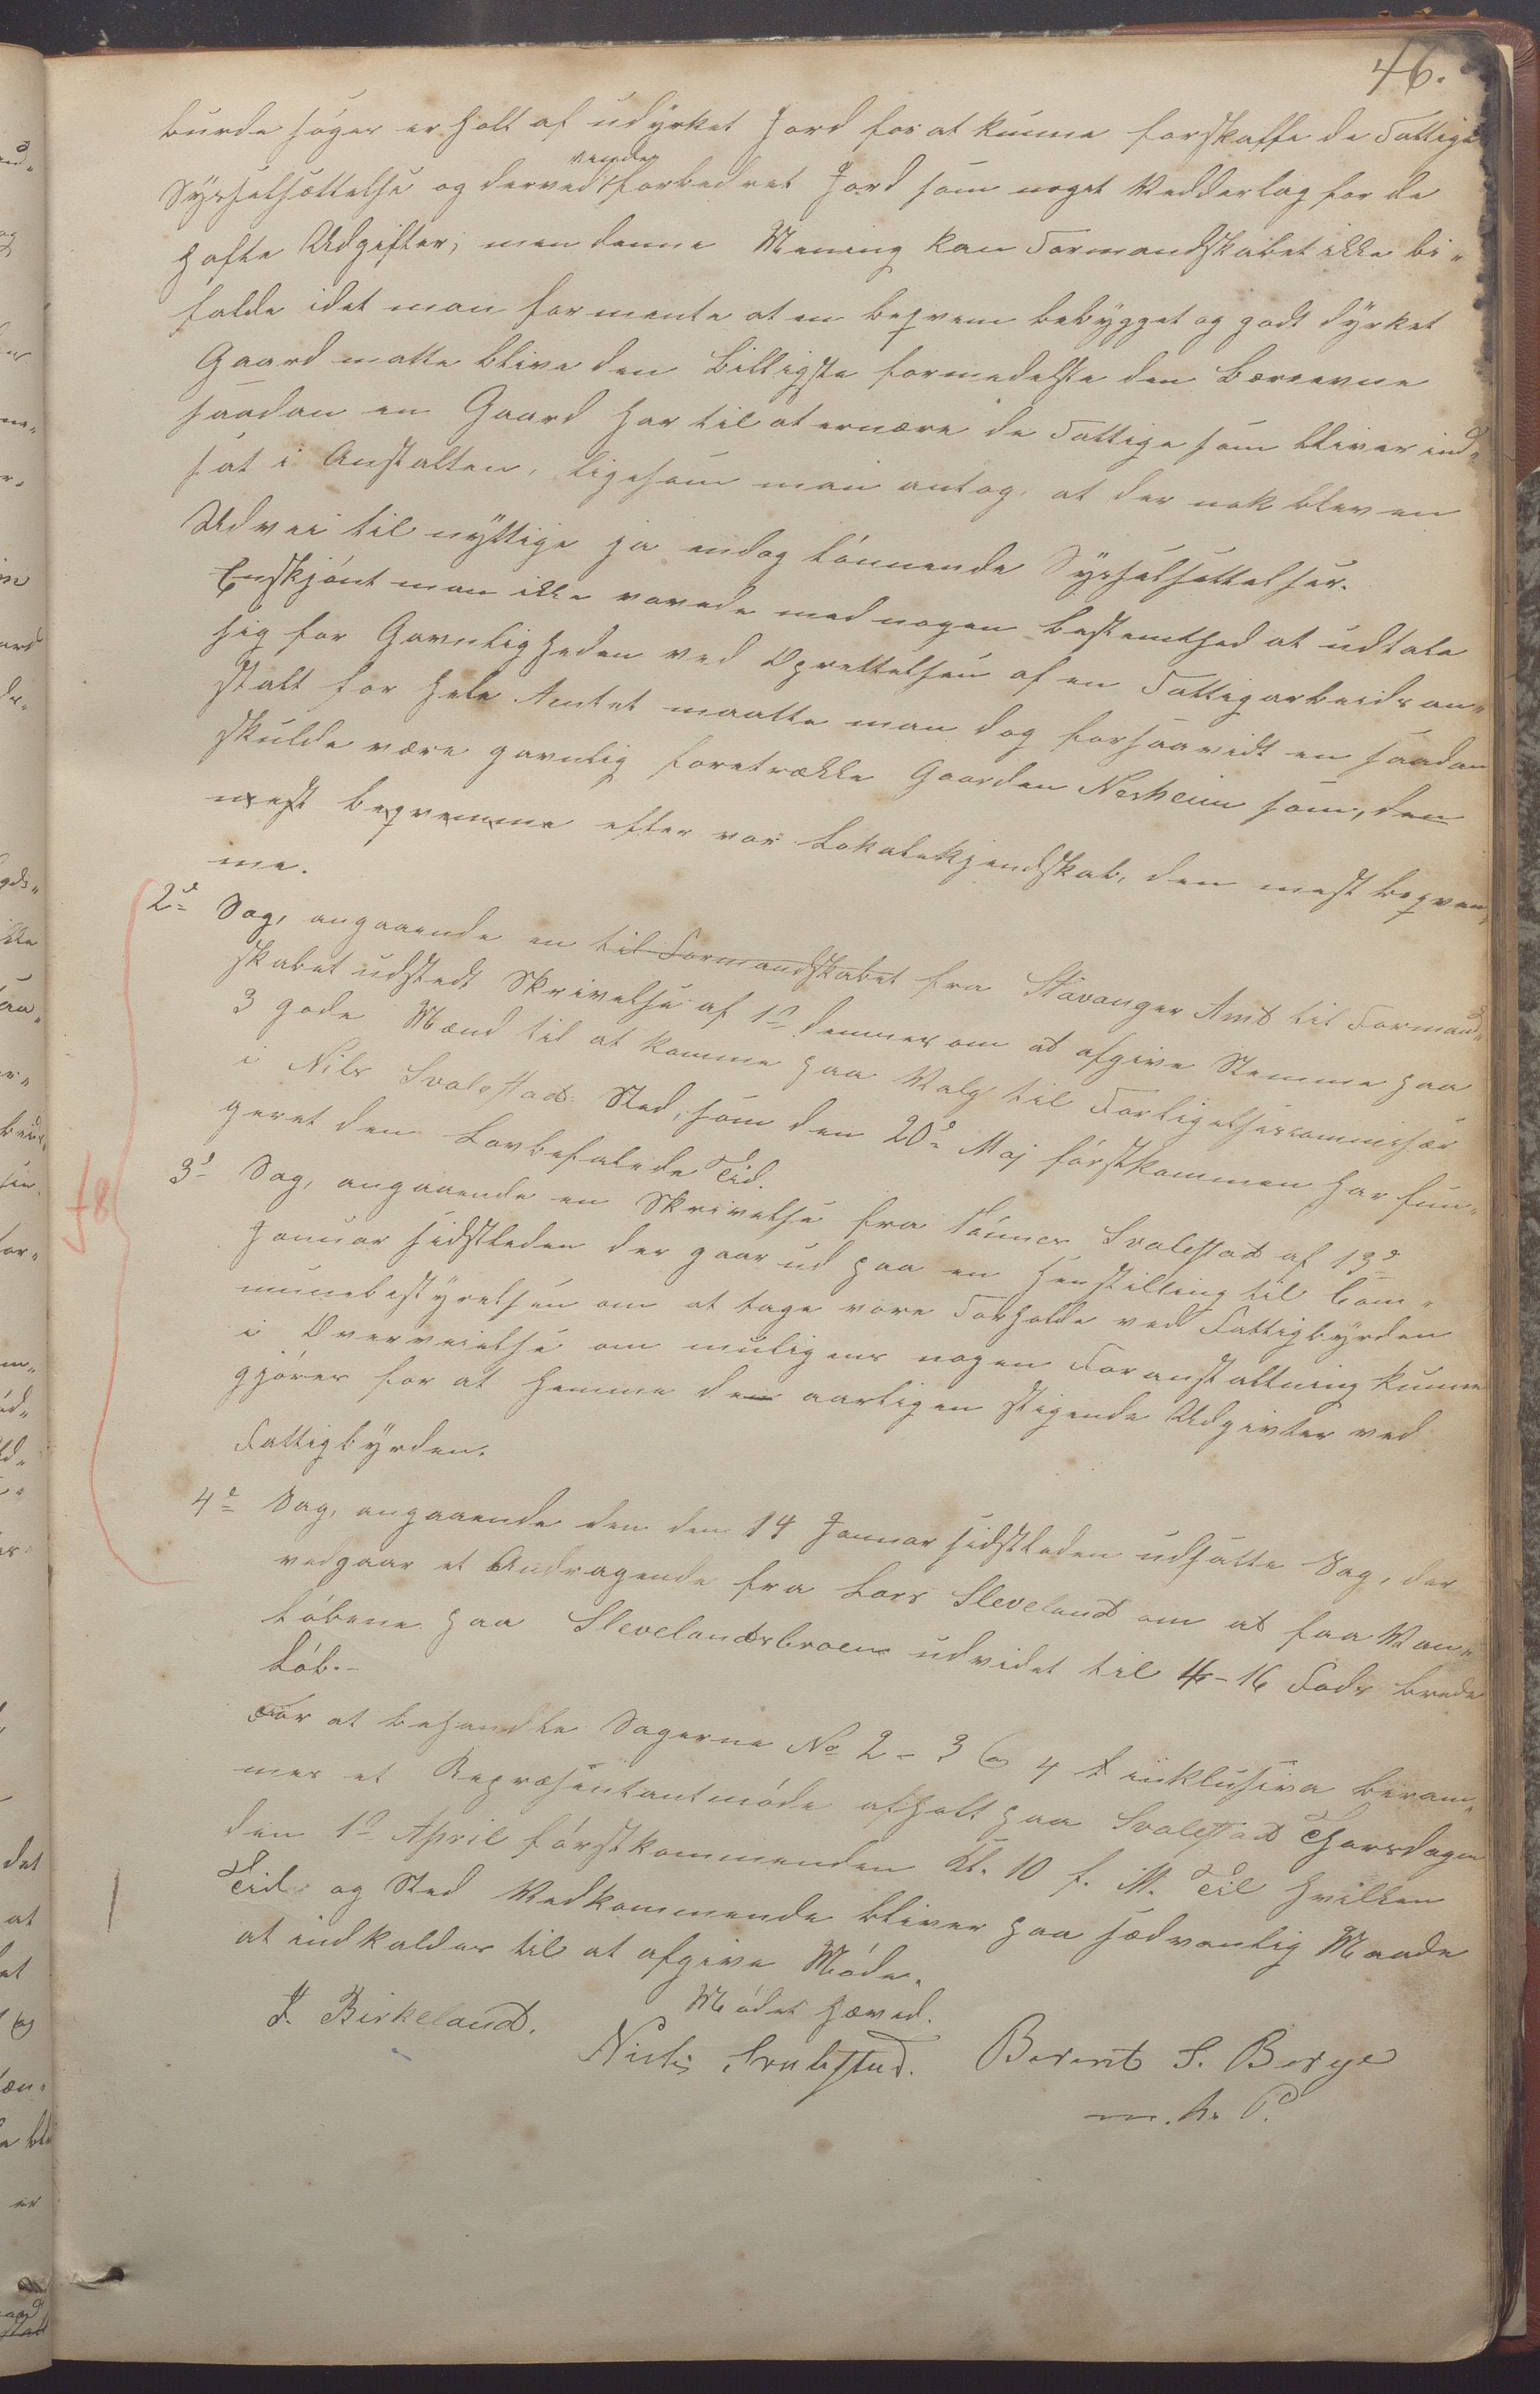 46.
burde søges erholt af udyrket Jord for at kunne forskaffe de Fattige
Sysselsættelse og derved vinde forbedret Jord som noget Vedderlag for de
hafte Udgifter; men denne Mening kan Formandskabet ikke bi„
falde idet man formente at en beqvem bebygget og godt dyrket
Gaard matte blive den billigste formedelste den Bæreevne
saadan en Gaard har til at ernære de Fattige som bliver ind„
sat i Anstalten, ligesom man antog, at der nok blev en
Udvei til nyttige ja endog lønnende Sysselsættelser.
Endskjønt man ikke vovede med nogen bestemthed at udtale
sig for Gavnligheden ved Oprettelsen af en Fattigarbeidsan„
stalt for hele Amtet maatte man dog forsaavidt en saadan
skulde være gavnlig foretrække Gaarden Nesheim som, den
mest beqvemme efter vor Lokalekjendskab, den mest beqvem„
me.
2d Sag, angaaende en til Formandskabet fra Stavanger Amt til Formand„
skabet udstedt Skrivelse af 1d dennes om at afgive Stemme paa
3 gode Mænd til at komme paa Valg til Forligelsescommissær
i Nils Svalestad Sted, som den 20d Maj førstkommen har fun„
geret den Lovbefalede Tid.
3d Sag, angaaende en Skrivelse fra Tønnes Svalestad af 13d
Januar sidstleden der gaar ud paa en Henstilling til Com„
munebestyrelsen om at tage vore Forholde ved Fattigbyrden
i Overveielse om muligens nogen Foranstaltning kunne
gjøres for at hemme den aarligen stigende Udgivter ved
Fattigbyrden.
48
4d Sag, angaaende den den 14 Januar sidstleden udsatte Sag, der
vedgaar et Andragende fra Lars Sleveland om at faa Van„
løbene paa Slevelandsbroen udvidet til 16 Fods brede
Løb.-
For at behandle Sagerne No 2 - 3 og 4 inklusiva beram„
mes et Repræsentantmøde afholt paa Svalestad Thorsdagen
den 1d April førstkommenden Kl. 10 f. M. Til hvilken
Tid og Sted Vedkommende bliver paa sædvanlig Maade
at indkaldes til at afgive Møde.
Mødet hævet.
J. Birkeland. Niels Svalestad. Berent S. Berge
m. h. P.